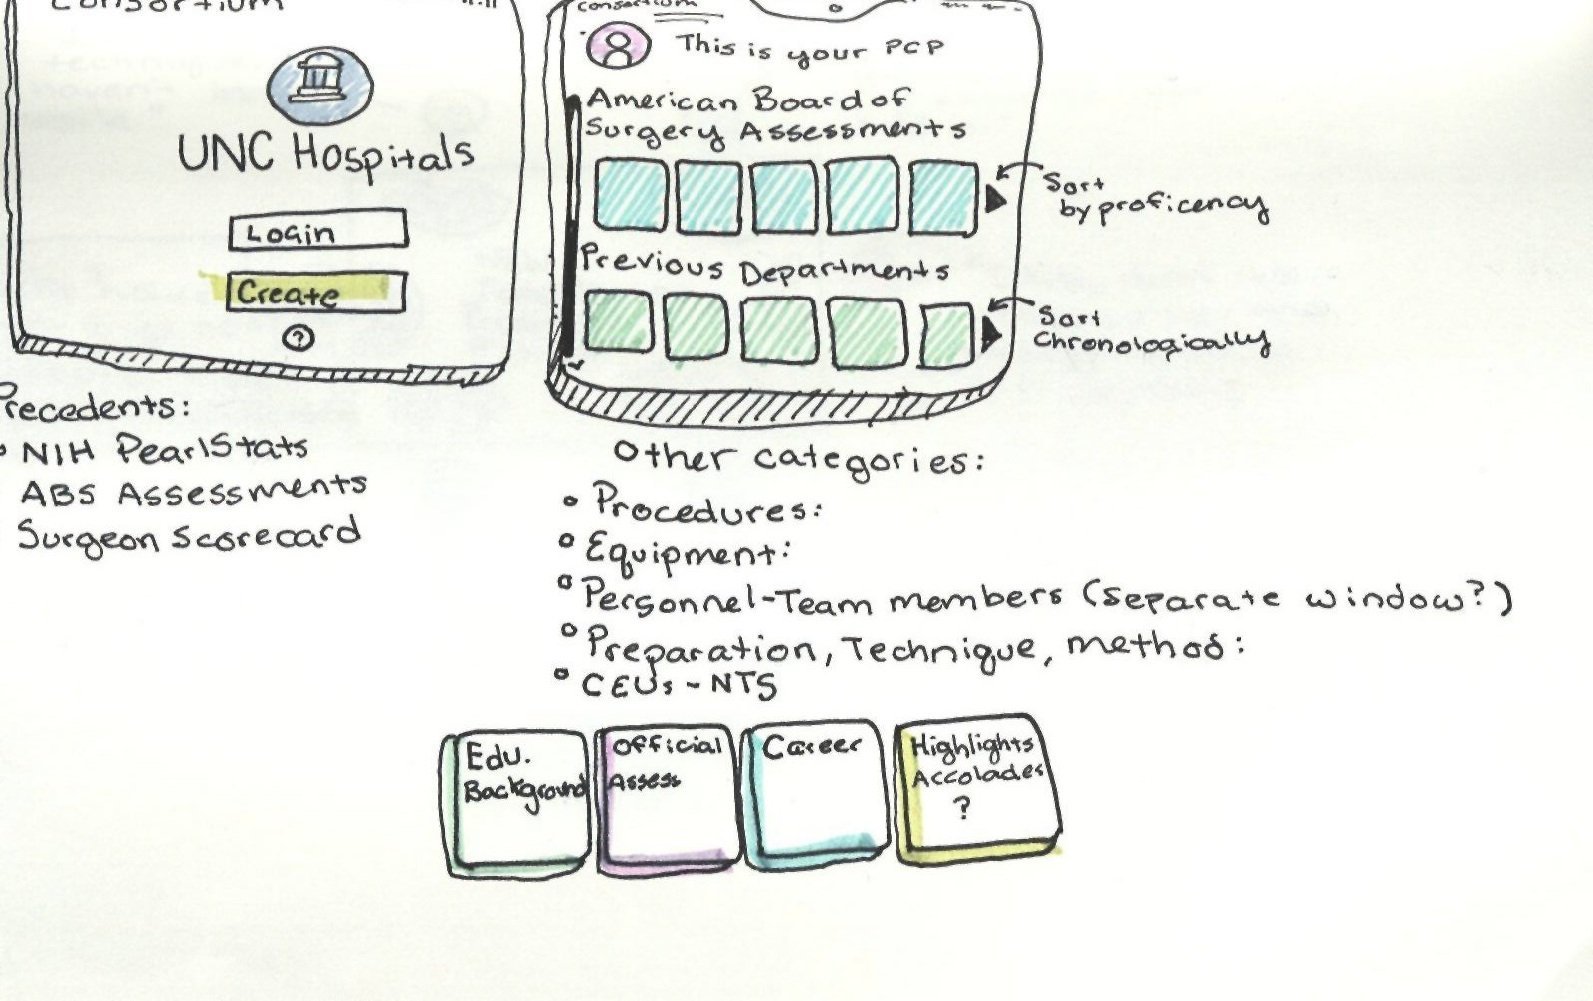 Consortium
UNC Hospitals
Login
Create
?
Precedents:
NIH PearlStats
ABS Assessments
Surgeon Scorecard
consortium
This is your PCP
American Board of
Surgery Assessments
Sort
by proficency
Previous Departments
Sort
Chronologically
Other categories:
Procedures:
Equipment:
Personnel-Team members (separate window?)
Preparation, Technique, method:
CEUs - NTS
Edu.
Background
Official
Assess
Career
Highlights
Accolades
?